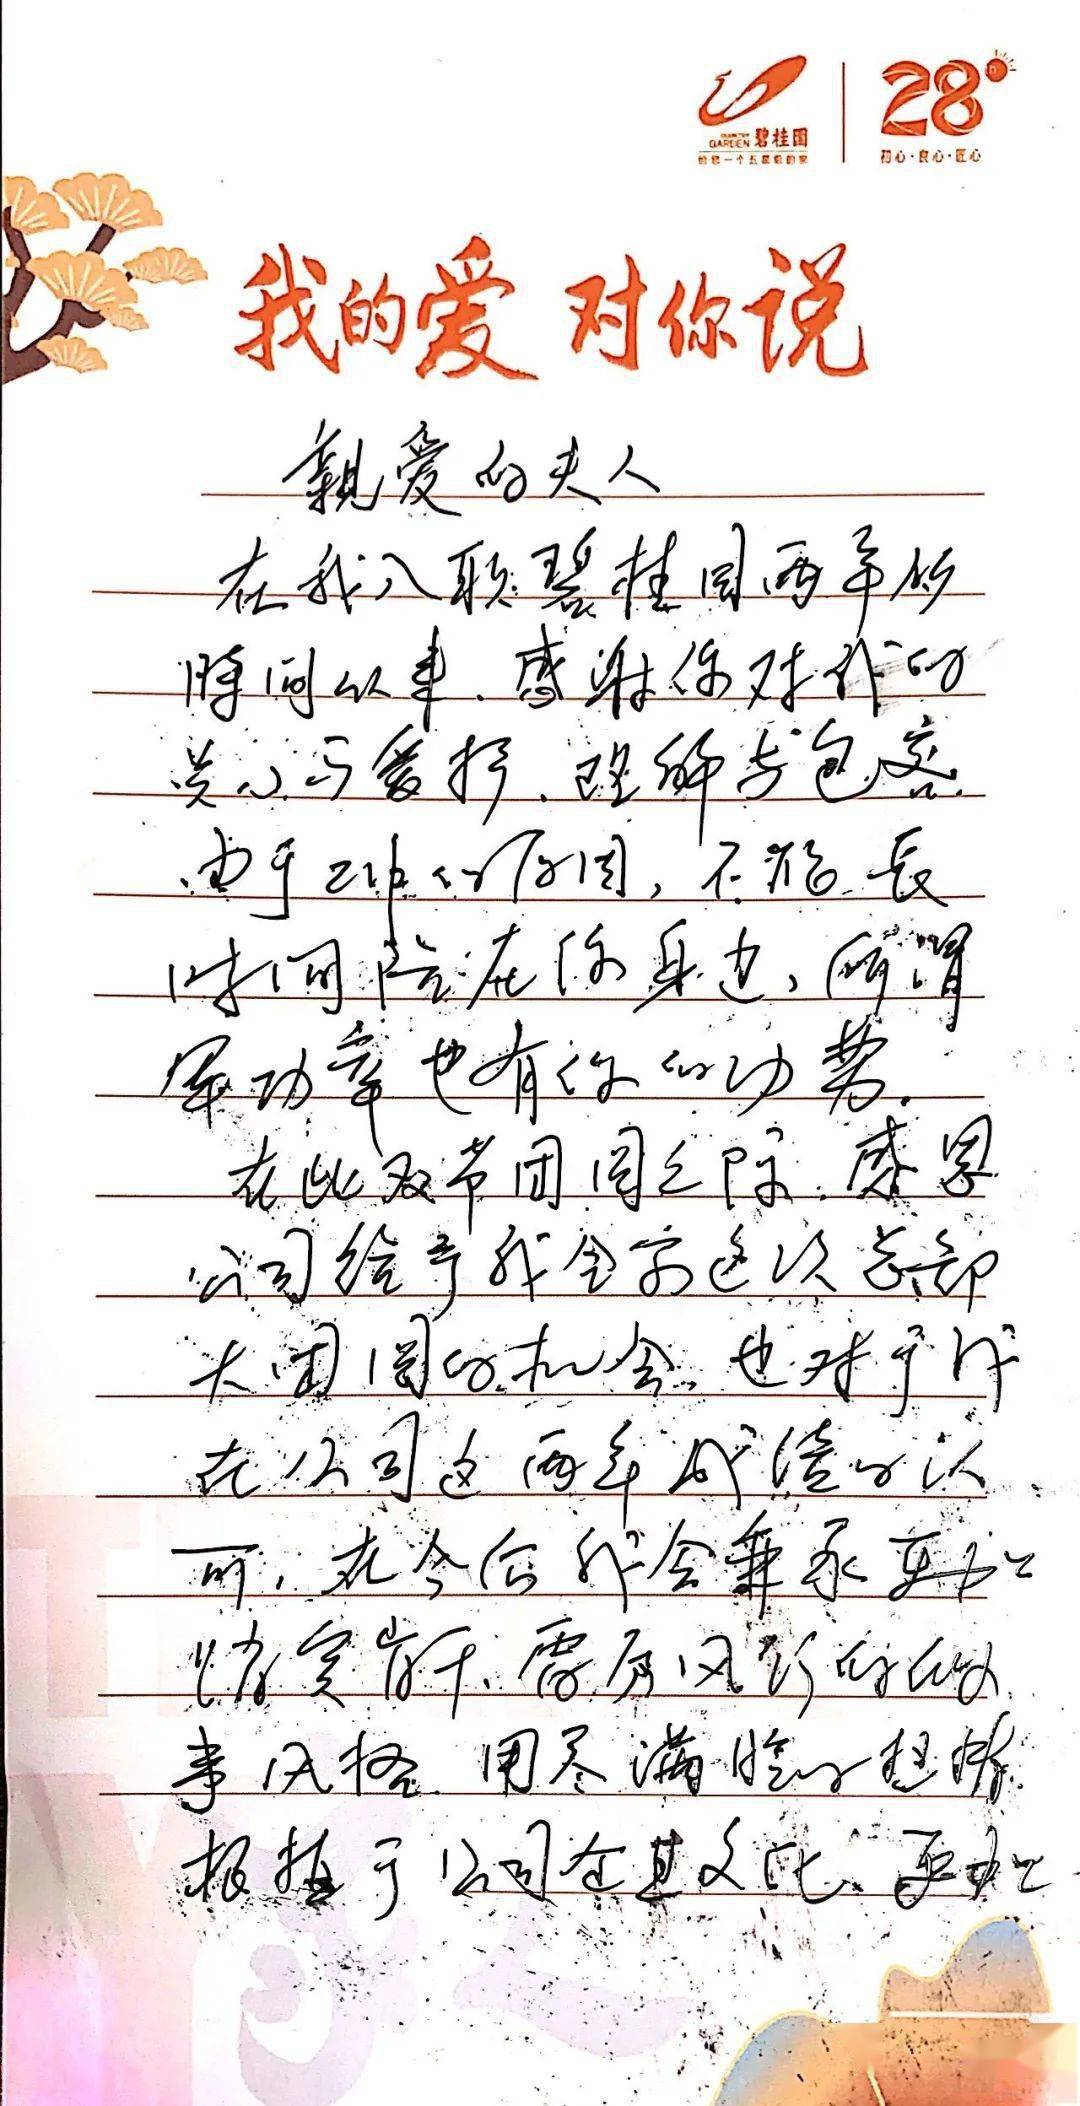 碧桂园
GARDEN
给您一个五星级的家
28°
初心·良心·匠心
我的爱 对你说
親爱的夫人
在我入职碧桂园两年的
時间以来、感谢你对我的
关心与爱护、理解与包容
由于工作的原因，不能长
时间陪在你身边、所谓
军功章也有你的功劳.
在此双节团圆之际、感恩
公司给予我全家这次总部
大团圆的机会、也对于我
在公司这两年成绩的认
可，在今后我会秉承更加
踏实肯干、雷厉风行的做
事风格 用尽满腔的热情
根植于公司企业文化、更加